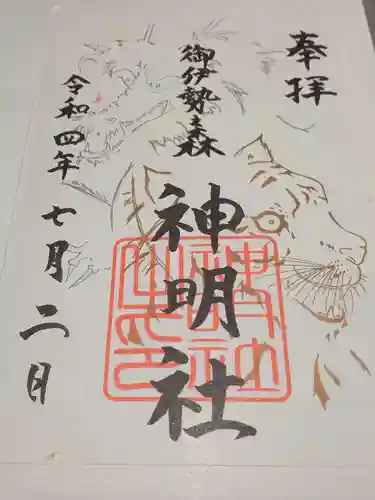 奉拝
御伊勢森
神明社
令和四年七月二日